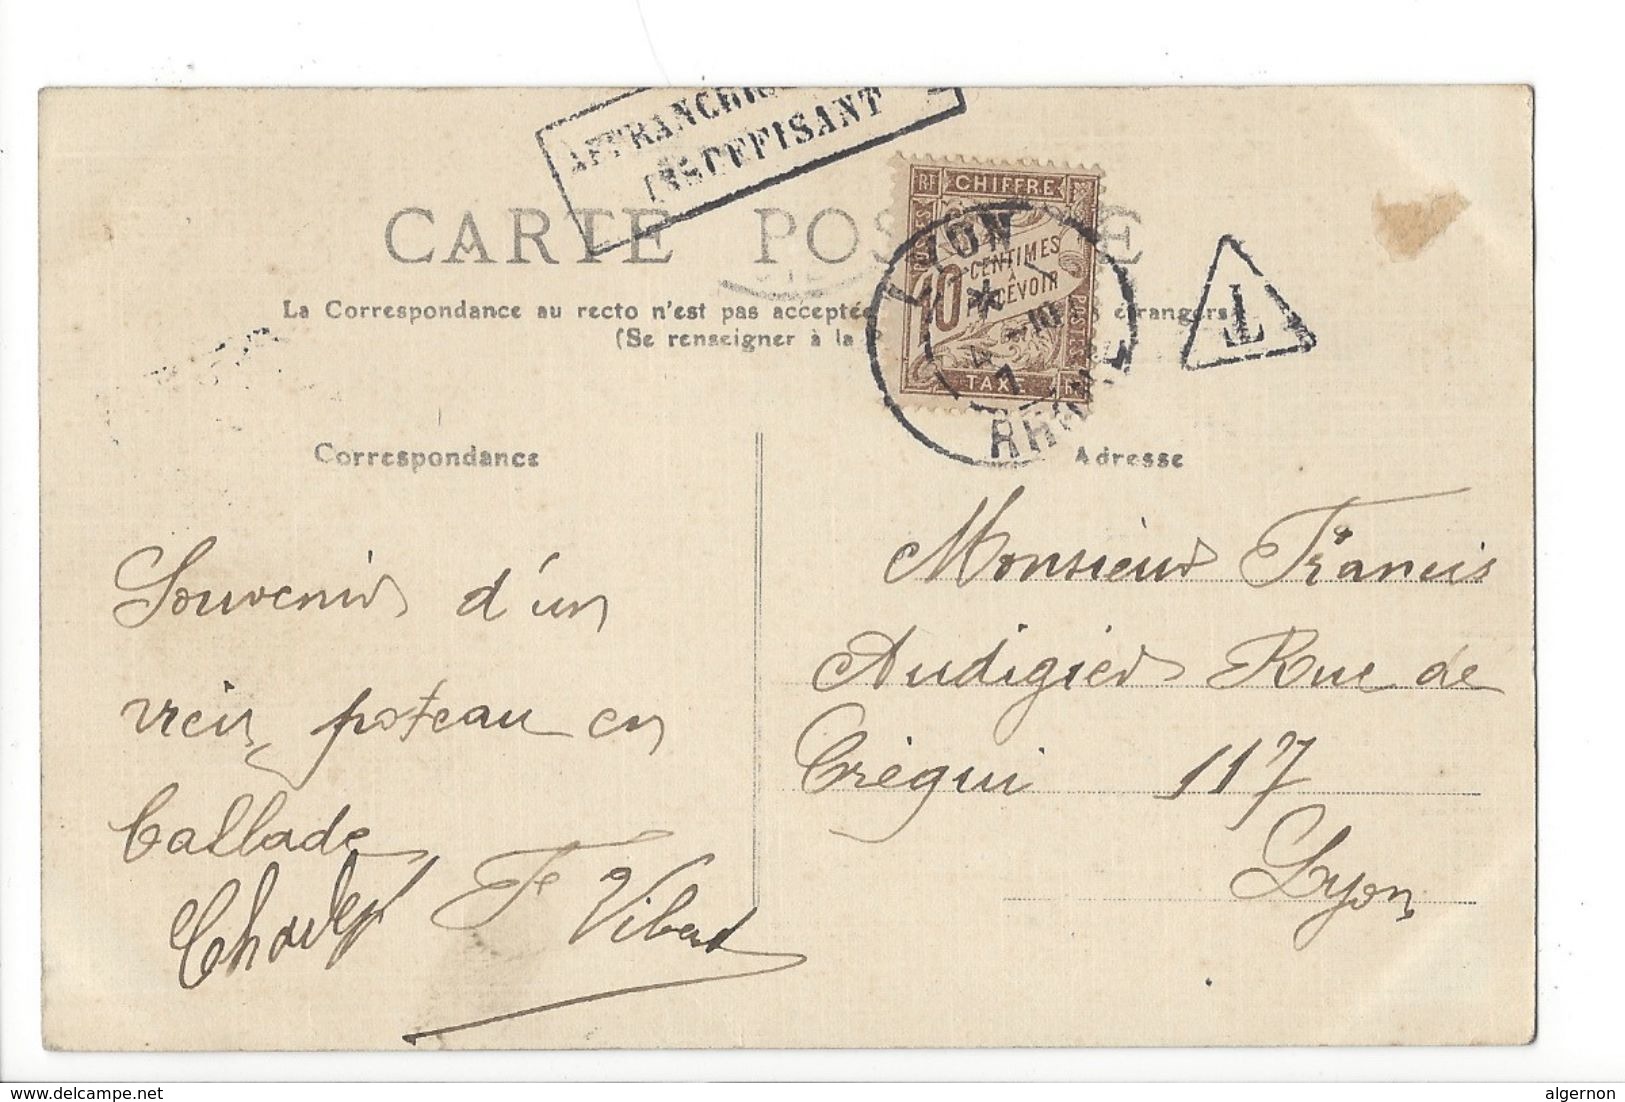 AFFRANCHIS
INSUFFISANT
CARTE POS E
La Correspondance au recto n'est pas acceptée étrangers
(Se renseigner à la
RF CHIFFRE
10 CENTIMES
À
PERCEVOIR
POSTES
TAXE
LYON
RHONE
T
Correspondance
Adresse
Souvenir d'un
vieux poteau en
ballade
Charles F Vibert
Monsieur Francis
Audigier Rue de
Créqui 117
Lyon
www.delcampe.net
algernon